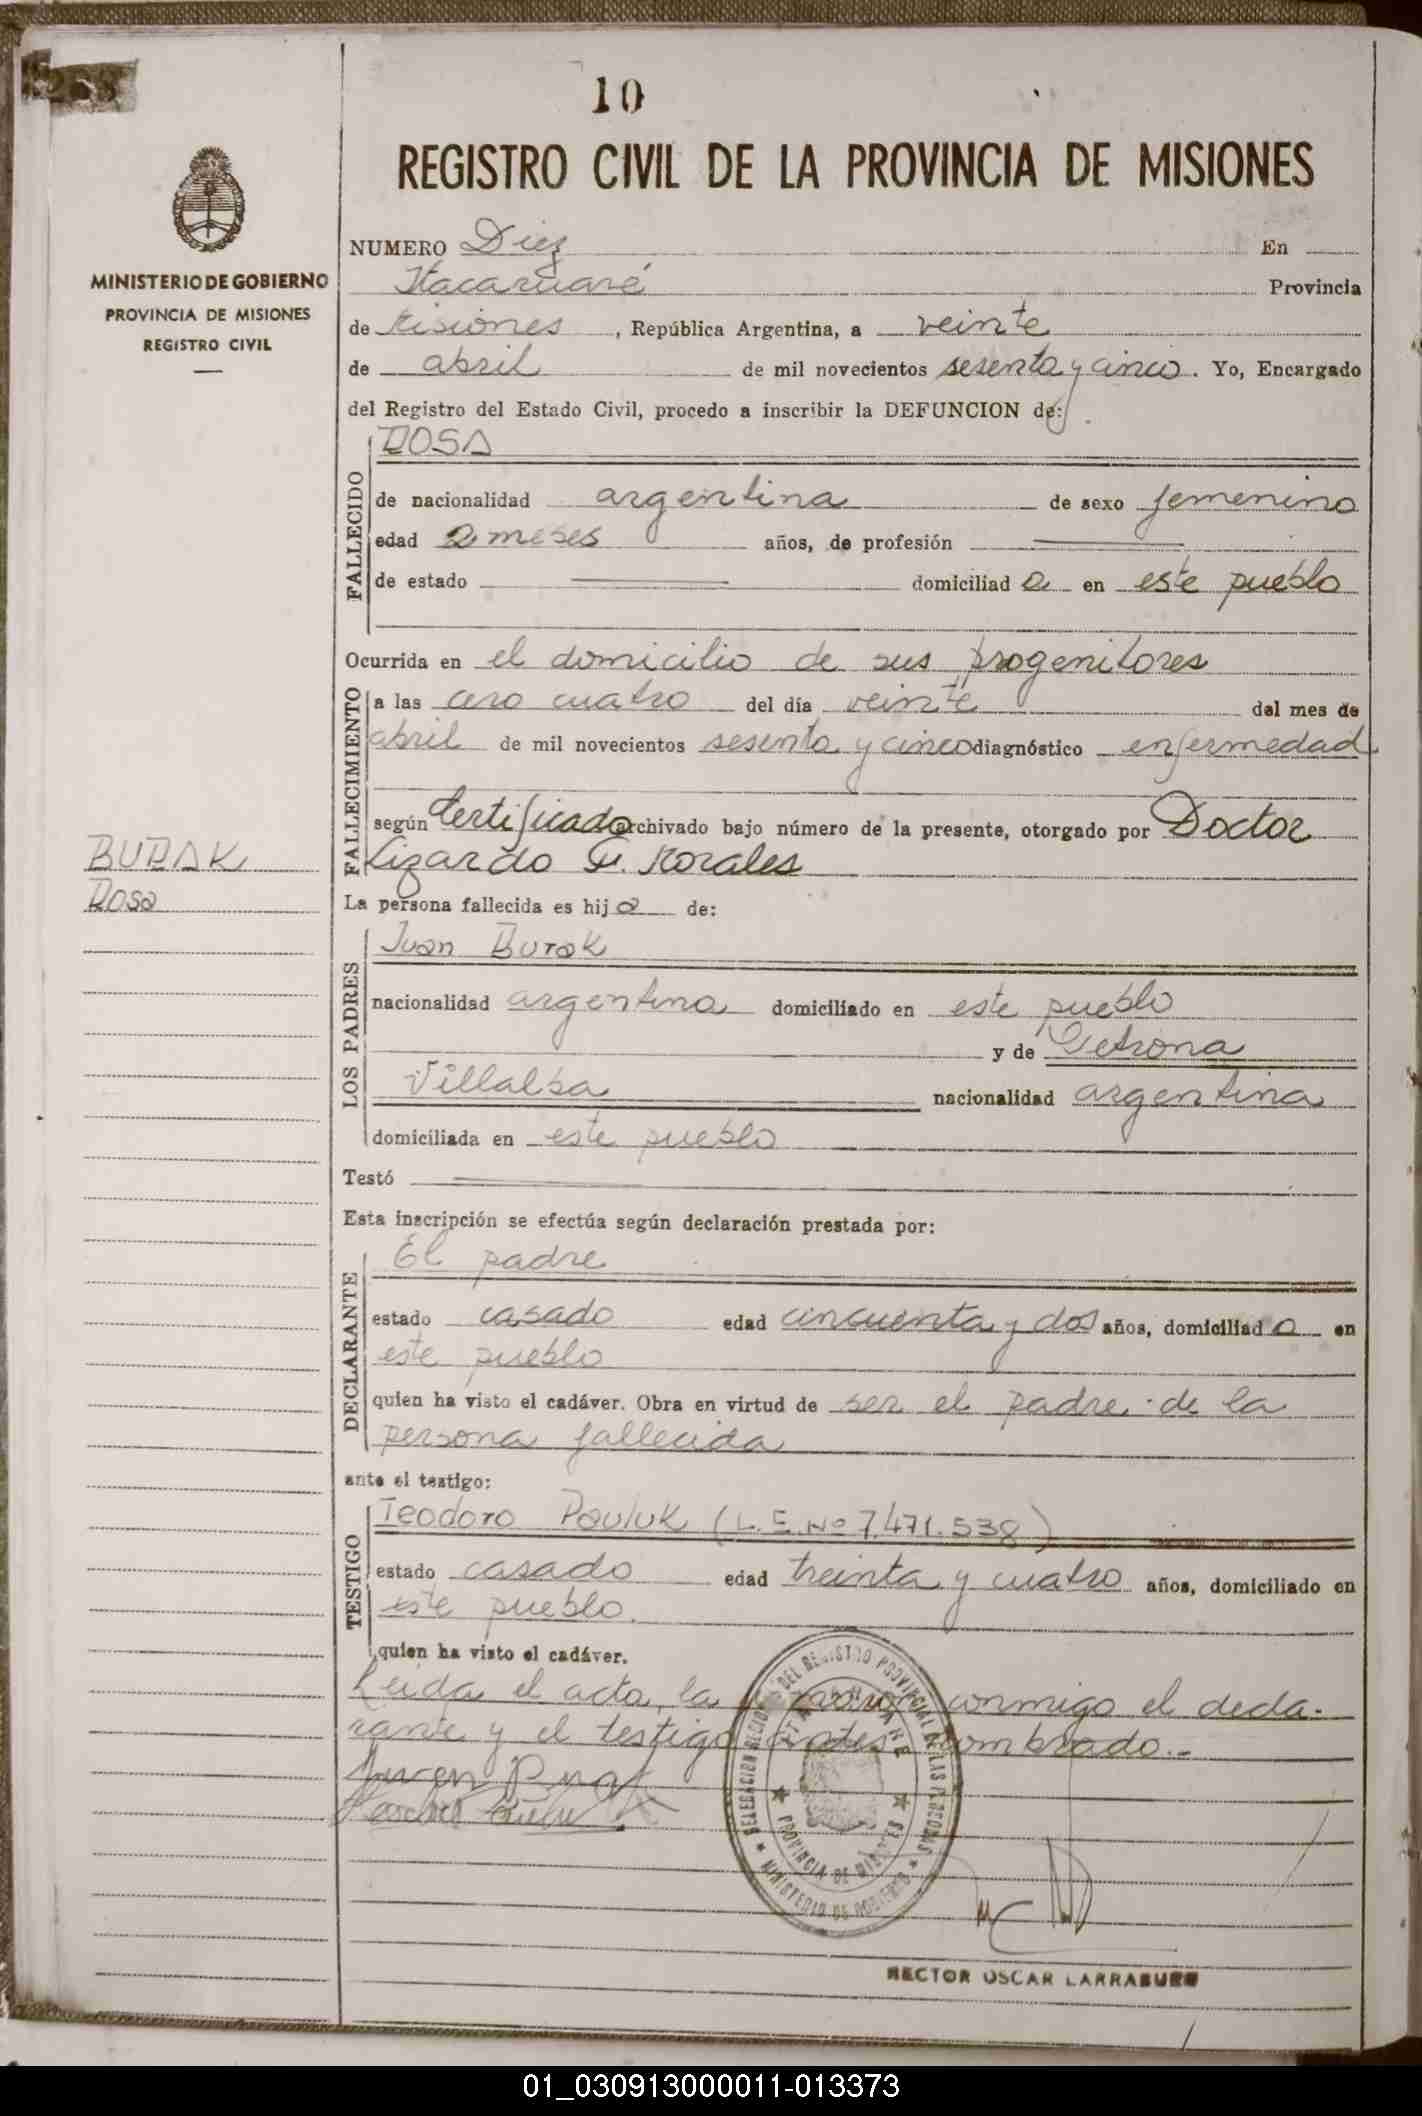 10
REGISTRO CIVIL DE LA PROVINCIA DE MISIONES
MINISTERIO DE GOBIERNO
PROVINCIA DE MISIONES
REGISTRO CIVIL
NUMERO Diez En
Itacaruaré Provincia
de Misiones, República Argentina, a veinte
de abril de mil novecientos sesenta y cinco. Yo, Encargado
del Registro del Estado Civil, procedo a inscribir la DEFUNCION de:
FALLECIDO
ROSA
de nacionalidad argentina de sexo femenino
edad 2 meses años, de profesión
de estado domiciliad a en este pueblo
Ocurrida en el domicilio de sus progenitores
FALLECIMIENTO
a las cero cuatro del día veinte del mes de
abril de mil novecientos sesenta y cinco diagnóstico enfermedad
según Certificado archivado bajo número de la presente, otorgado por Doctor
Lizardo F. Morales
BURAK
Rosa
La persona fallecida es hij a de:
LOS PADRES
Juan Burak
nacionalidad argentina domiciliado en este pueblo
y de Petrona
Villalba nacionalidad argentina
domiciliada en este pueblo
Testó
Esta inscripción se efectúa según declaración prestada por:
DECLARANTE
El padre
estado casado edad cincuenta y dos años, domiciliad o en
este pueblo
quien ha visto el cadáver. Obra en virtud de ser el padre de la
persona fallecida
ante el testigo:
TESTIGO
Teodoro Pauluk (L.E. Nº 7.471.538)
estado casado edad treinta y cuatro años, domiciliado en
este pueblo.
quien ha visto el cadáver.
Leida el acta, la conmigo el decla-
rante y el testigo antes nombrado.-
DELEGACION DEL REGISTRO PROVINCIAL DE LAS PERSONAS
ITACARUARE
PROVINCIA DE MISIONES
MINISTERIO DE GOBIERNO
HECTOR OSCAR LARRABURE
01_030913000011-013373